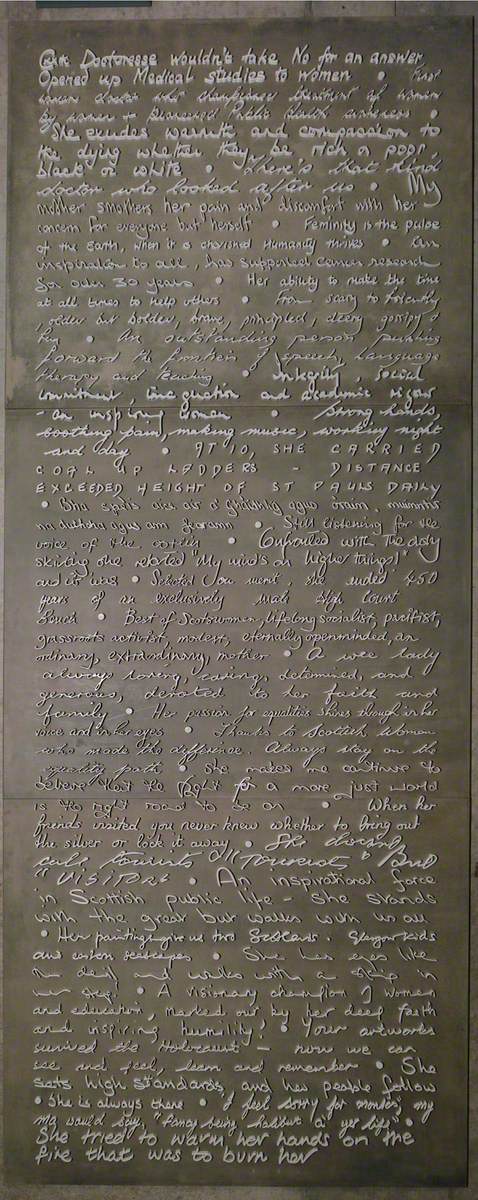 Doctoresse wouldn't take No for an answer
Opened up Medical studies to women • First
woman doctor who championed treatment of women
by women + pioneered Public Health awareness •
She exudes warmth and compassion to
the dying whether they be rich or poor,
black or white • "There's that kind
doctor who looked after us" • My
mother smothers her pain and discomfort with her
concern for everyone but herself • Feminity is the pulse
of the Earth, when it is cherished Humanity thrives • An
inspiration to all, has supported cancer research
for over 30 years • Her ability to make the time
at all times to help others • From scary to
, older but bolder, brave, principled, deery gossipy &
fun • An outstanding person pushing
forward the frontiers of speech, language
therapy and teaching • Integrity, social
commitment, imagination and academic vigour
- an inspiring woman • Strong hands,
soothing pain, making music, working night
and day • AT 10, SHE CARRIED
COAL UP LADDERS - DISTANCE
EXCEEDED HEIGHT OF ST PAULS DAILY
• agus òrain, muinntir
na dùthcha agus am fearann • Still listening for the
voice of the • Confronted with the daily
skiting she retorted "My mind's on higher things!"
and it was • Selected you went, she ended 450
years of an exclusively male High Court
Bench • Best of Scotswomen, lifelong socialist, pacifist,
grassroots activist, modest, eternally openminded, an
ordinary, extraordinary, mother • A wee lady
always loving, caring, determined, and
generous, devoted to her faith and
family • Her passion for equalities shines through in her
voice and in her eyes • Thanks to Scottish Women
who made the difference. Always stay on the
equality path • She makes me continue to
believe that the fight for a more just world
is the right road to be on • When her
friends visited you never knew whether to bring out
the silver or lock it away • She
call tourists "Tourist" but
"VISITORS • An inspirational force
in Scottish public life - She stands
with the great but walks with us all
• Her paintings give us two Scotlands. Glasgow kids
and Catterline seascapes • She has eyes like
and walks with a skip in
her step! • A visionary champion of women
and education, marked out by her deep faith
and inspiring humility! • Your artworks
survived the Holocaust - now we can
see and feel, learn and remember • She
sets high standards, and her people follow
• She is always there • I feel sorry for monder, my
ma would say, "Fancy being halibut a' yer life" •
She tried to warm her hands on the
fire that was to burn her